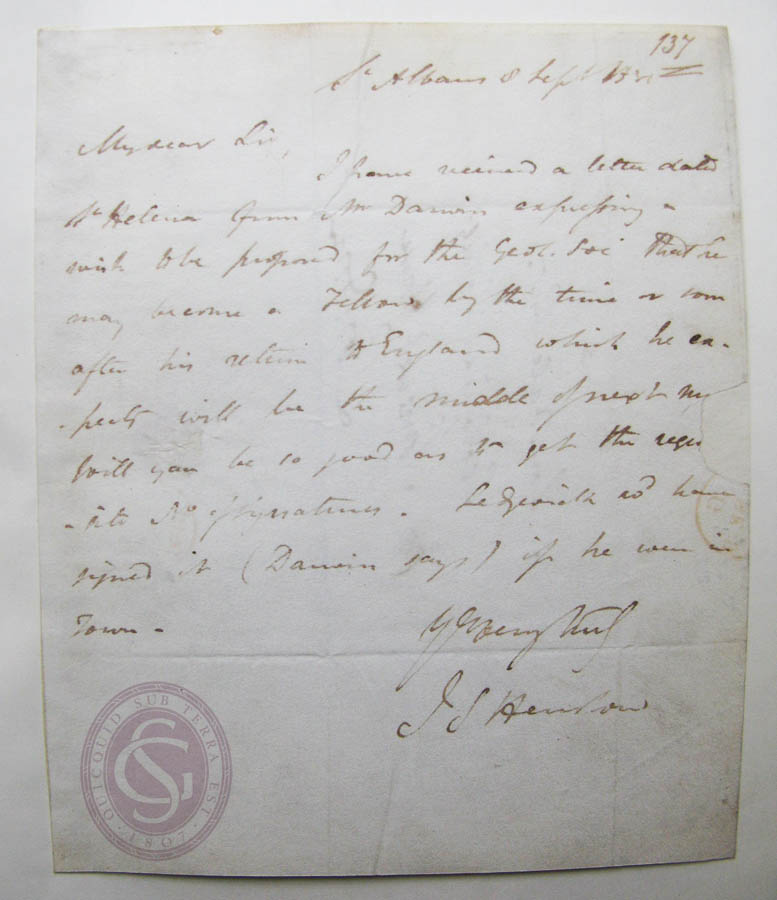 137
St Albans 8 Sept
My dear Sir,
I have received a letter dated
St Helena from Mr Darwin expressing a
wish to be proposed for the Geol. Soc that he
may become a Fellow by the time or soon
after his return to England which he ex-
-pects will be the middle of next
Will you be so good as to get the requi
-site No of signatures. Sedgwick wd have
signed it (Darwin says) if he were in
Town.
Yrs very truly
J S Henslow
QUICQUID SUB TERRA EST
1807
GS